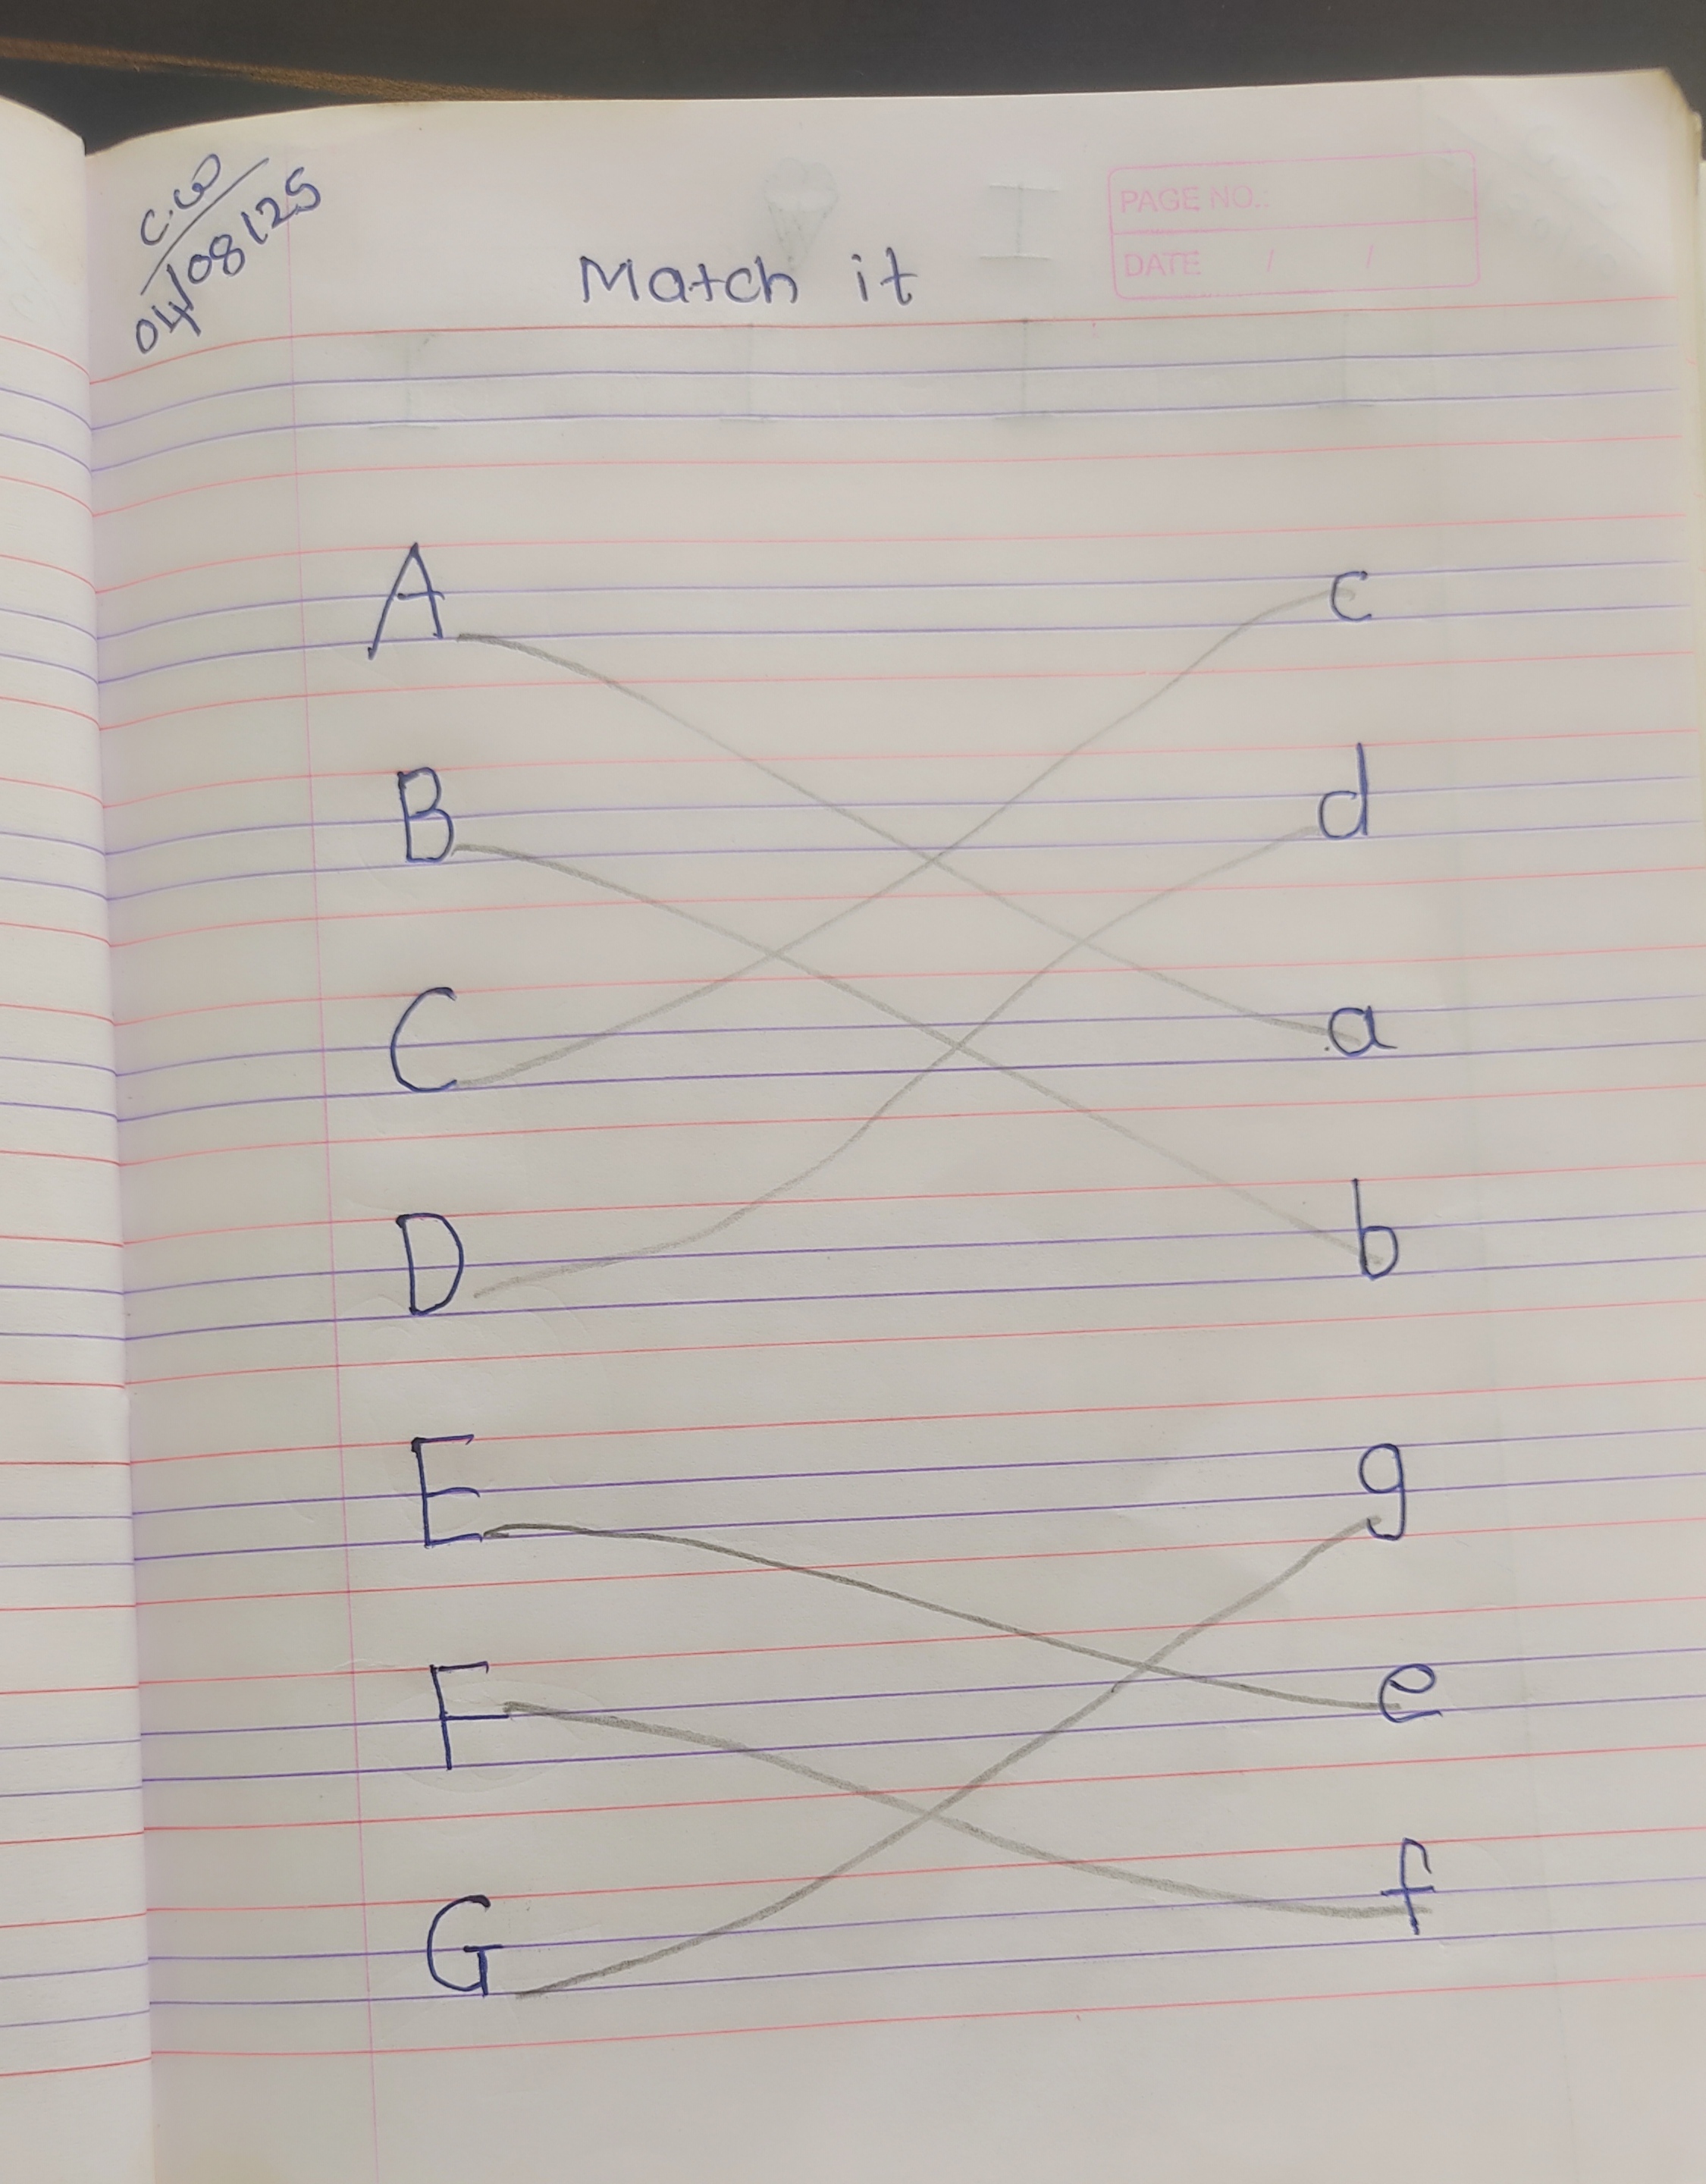 C.W
04/08/25
PAGE NO.:
DATE / /
Match it
A c
B d
C a
D b
E g
F e
G f